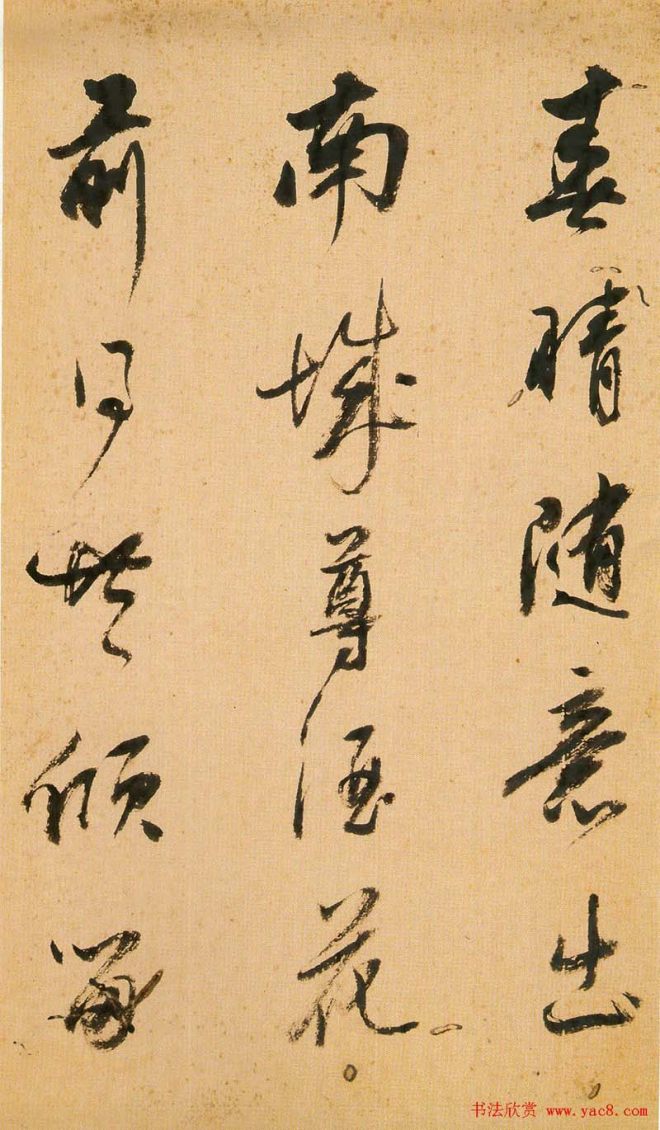 春晴随意出
南城尊酒花
前日共倾
书法欣赏 www.yac8.com